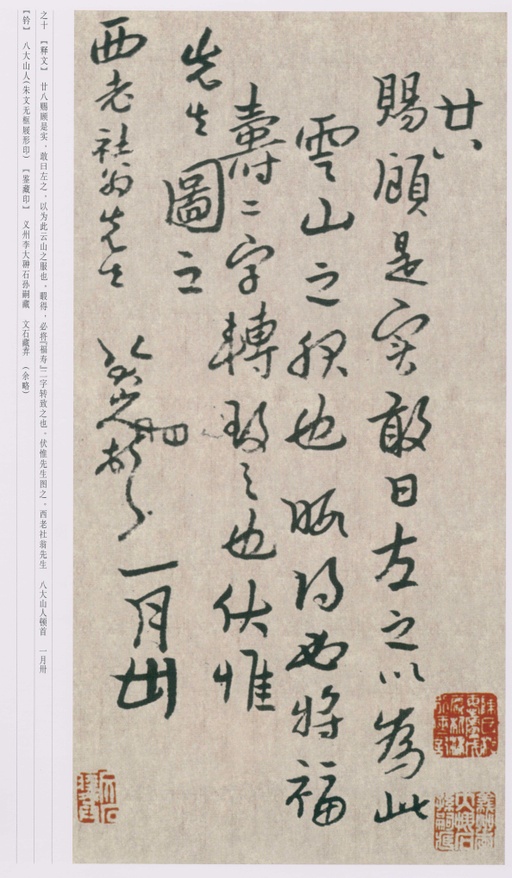 廿八
賜顧是实敢曰左之以為此
雲山之服也暇得必将福
壽二字轉致之也伏惟
先生圖之
西老社翁先生
八大山人頓首
一月卅
之十 【释文】 廿八赐顾是实，敢曰左之，以为此云山之服也，暇得，必将『福寿』二字转致之也。伏惟先生图之。西老社翁先生 八大山人顿首 一月卅
【钤】 八大山人(朱文无框屐形印) 【鉴藏印】 义州李大翀石孙嗣藏 文石藏弆 (余略)